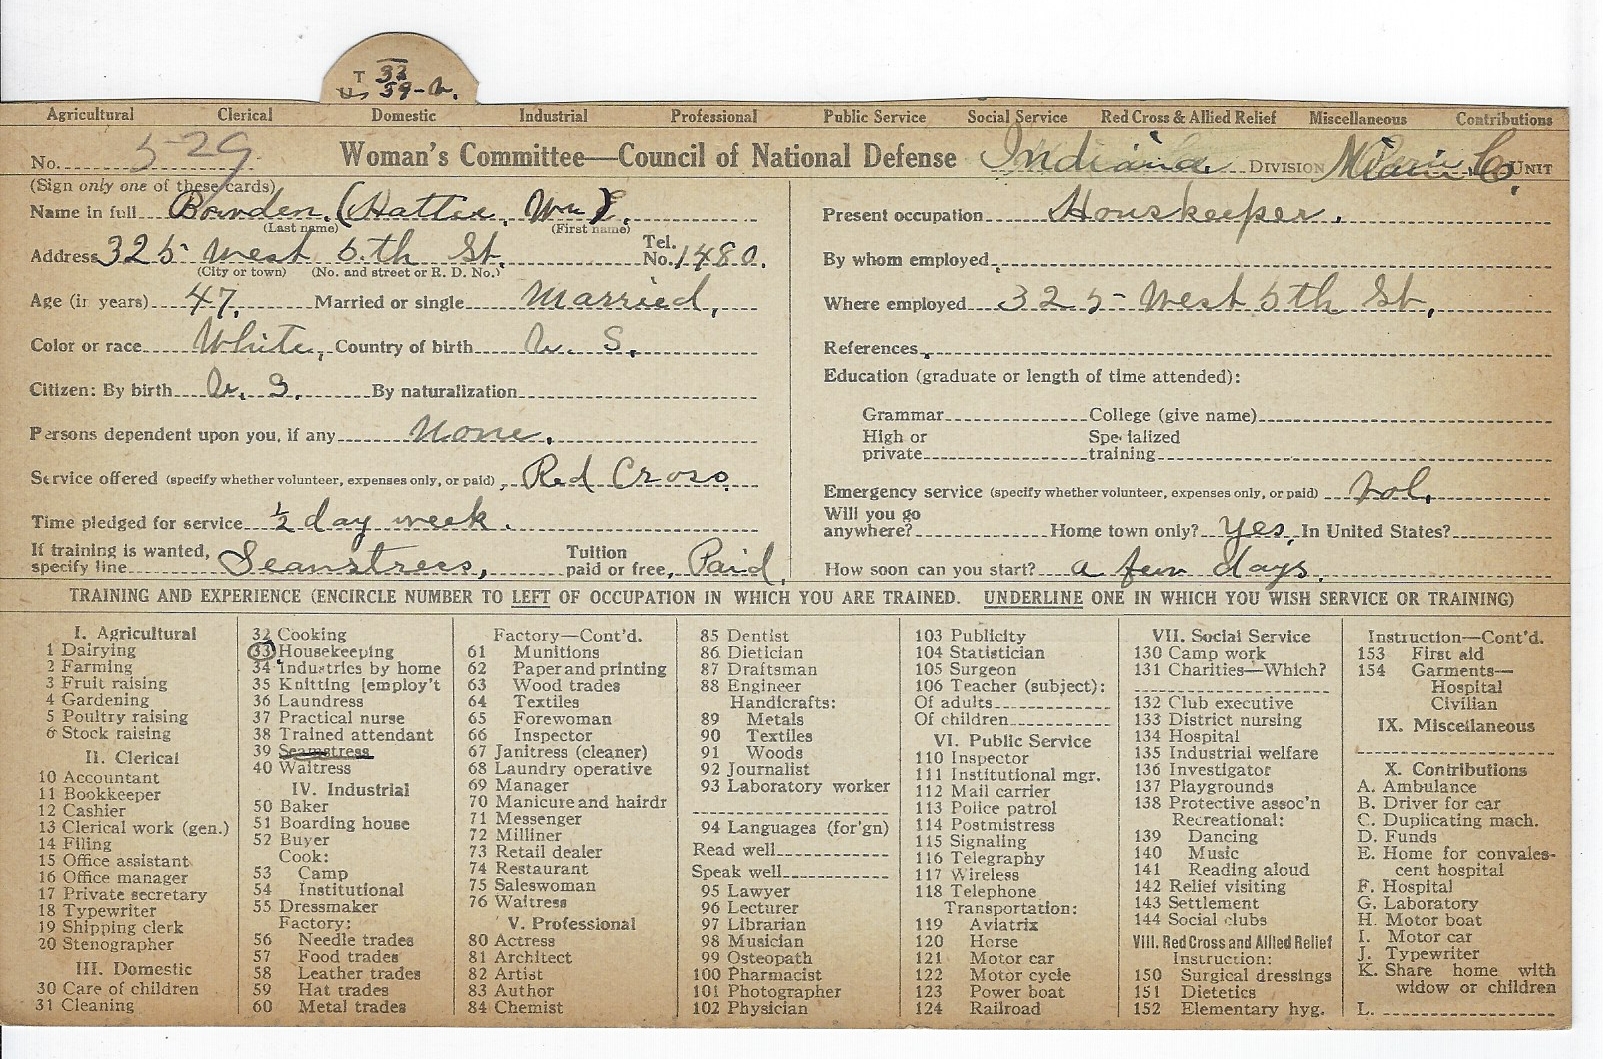 T 33
US 39-V.
Agricultural Clerical Domestic Industrial Professional Public Service Social Service Red Cross & Allied Relief Miscellaneous Contributions
No. 5-29 Woman's Committee—Council of National Defense Indiana DIVISION Miami Co. UNIT
(Sign only one of these cards)
Name in full Bowden, (Hattie, Wm) E.
(Last name) (First name)
Address 325 West 5th St. Tel. No. 1480.
(City or town) (No. and street or R. D. No.)
Age (in years) 47. Married or single Married,
Color or race White, Country of birth U. S.
Citizen: By birth U. S. By naturalization
Persons dependent upon you, if any None.
Service offered (specify whether volunteer, expenses only, or paid), Red Cross
Time pledged for service ½ day week.
If training is wanted, specify line Seamstress, Tuition paid or free, Paid.
Present occupation Houskeeper.
By whom employed
Where employed 325 West 5th St,
References
Education (graduate or length of time attended):
Grammar College (give name)
High or private Specialized training
Emergency service (specify whether volunteer, expenses only, or paid) Vol.
Will you go anywhere? Home town only? Yes, In United States?
How soon can you start? a few days.
TRAINING AND EXPERIENCE (ENCIRCLE NUMBER TO LEFT OF OCCUPATION IN WHICH YOU ARE TRAINED. UNDERLINE ONE IN WHICH YOU WISH SERVICE OR TRAINING)
I. Agricultural
1 Dairying
2 Farming
3 Fruit raising
4 Gardening
5 Poultry raising
6 Stock raising
II. Clerical
10 Accountant
11 Bookkeeper
12 Cashier
13 Clerical work (gen.)
14 Filing
15 Office assistant
16 Office manager
17 Private secretary
18 Typewriter
19 Shipping clerk
20 Stenographer
III. Domestic
30 Care of children
31 Cleaning
32 Cooking
33 Housekeeping
34 Industries by home
35 Knitting [employ't
36 Laundress
37 Practical nurse
38 Trained attendant
39 Seamstress
40 Waitress
IV. Industrial
50 Baker
51 Boarding house
52 Buyer
Cook:
53 Camp
54 Institutional
55 Dressmaker
Factory:
56 Needle trades
57 Food trades
58 Leather trades
59 Hat trades
60 Metal trades
Factory—Cont'd.
61 Munitions
62 Paper and printing
63 Wood trades
64 Textiles
65 Forewoman
66 Inspector
67 Janitress (cleaner)
68 Laundry operative
69 Manager
70 Manicure and hairdr
71 Messenger
72 Milliner
73 Retail dealer
74 Restaurant
75 Saleswoman
76 Waitress
V. Professional
80 Actress
81 Architect
82 Artist
83 Author
84 Chemist
85 Dentist
86 Dietician
87 Draftsman
88 Engineer
Handicrafts:
89 Metals
90 Textiles
91 Woods
92 Journalist
93 Laboratory worker
94 Languages (for'gn)
Read well
Speak well
95 Lawyer
96 Lecturer
97 Librarian
98 Musician
99 Osteopath
100 Pharmacist
101 Photographer
102 Physician
103 Publicity
104 Statistician
105 Surgeon
106 Teacher (subject):
Of adults
Of children
VI. Public Service
110 Inspector
111 Institutional mgr.
112 Mail carrier
113 Police patrol
114 Postmistress
115 Signaling
116 Telegraphy
117 Wireless
118 Telephone
Transportation:
119 Aviatrix
120 Horse
121 Motor car
122 Motor cycle
123 Power boat
124 Railroad
VII. Social Service
130 Camp work
131 Charities—Which?
132 Club executive
133 District nursing
134 Hospital
135 Industrial welfare
136 Investigator
137 Playgrounds
138 Protective assoc'n
Recreational:
139 Dancing
140 Music
141 Reading aloud
142 Relief visiting
143 Settlement
144 Social clubs
VIII. Red Cross and Allied Relief
Instruction:
150 Surgical dressings
151 Dietetics
152 Elementary hyg.
Instruction—Cont'd.
153 First aid
154 Garments—
Hospital
Civilian
IX. Miscellaneous
X. Contributions
A. Ambulance
B. Driver for car
C. Duplicating mach.
D. Funds
E. Home for convales-
cent hospital
F. Hospital
G. Laboratory
H. Motor boat
I. Motor car
J. Typewriter
K. Share home with
widow or children
L.